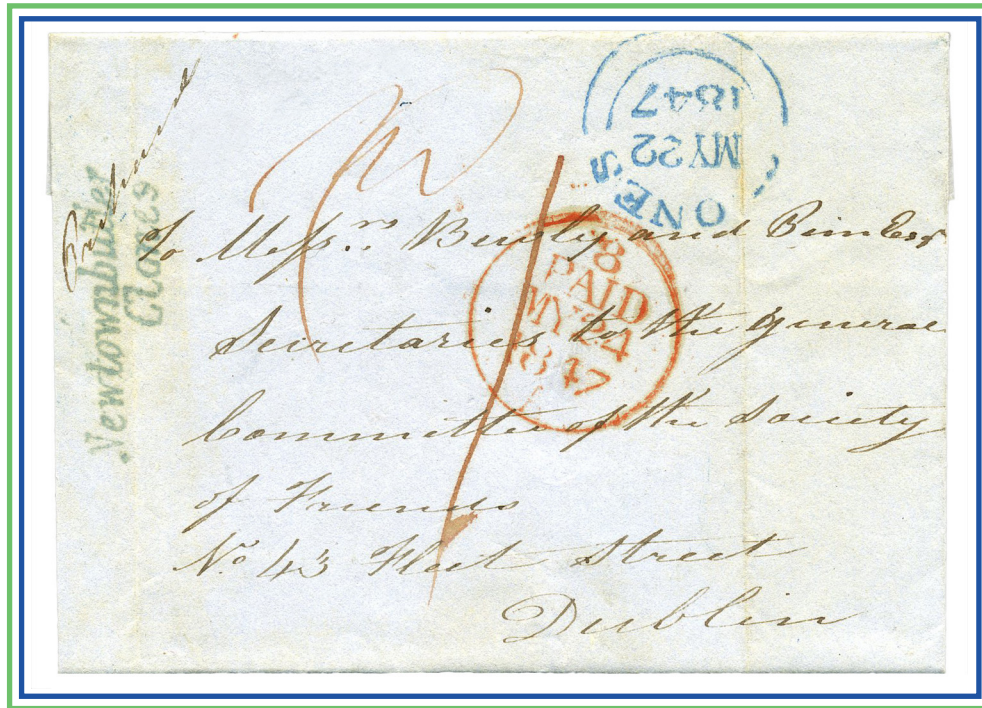 ONES
MY 22
1847
Newtownbutler
Clones
8
PAID
MY 24
1847
1
To Messrs. Bewly and Pim Esqr
Secretaries to the General
Committee of the Society
of Friends
No. 43 Fleet Street
Dublin